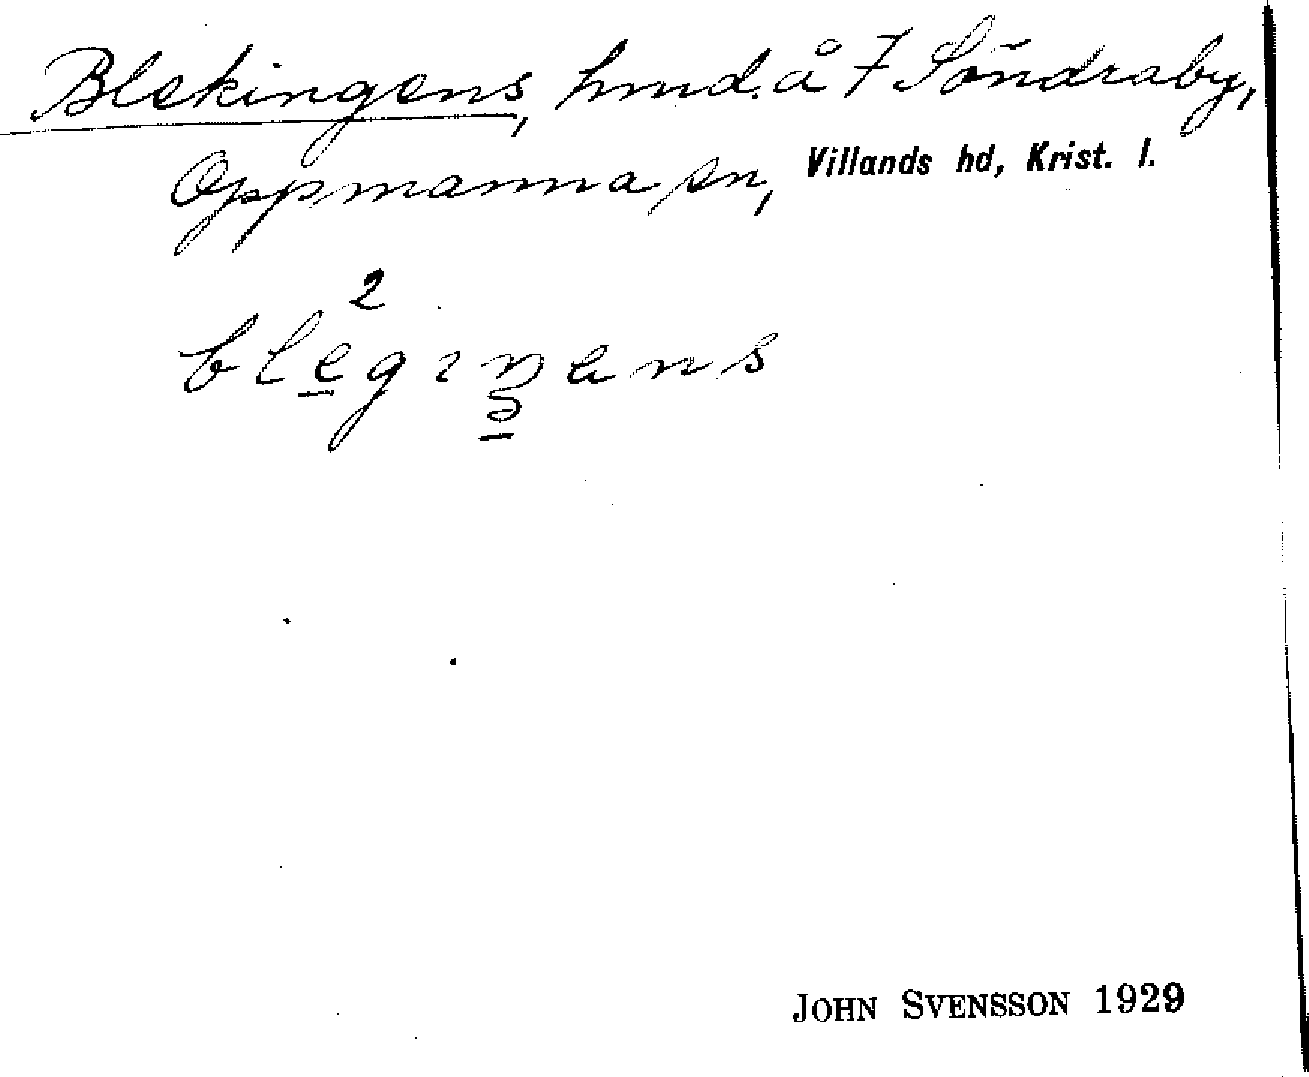 Blekingens, hmd. å 7 Söndraby,
Oppmanna sn, Villands hd, Krist. l.
2
blegıŋans
JOHN SVENSSON 1929